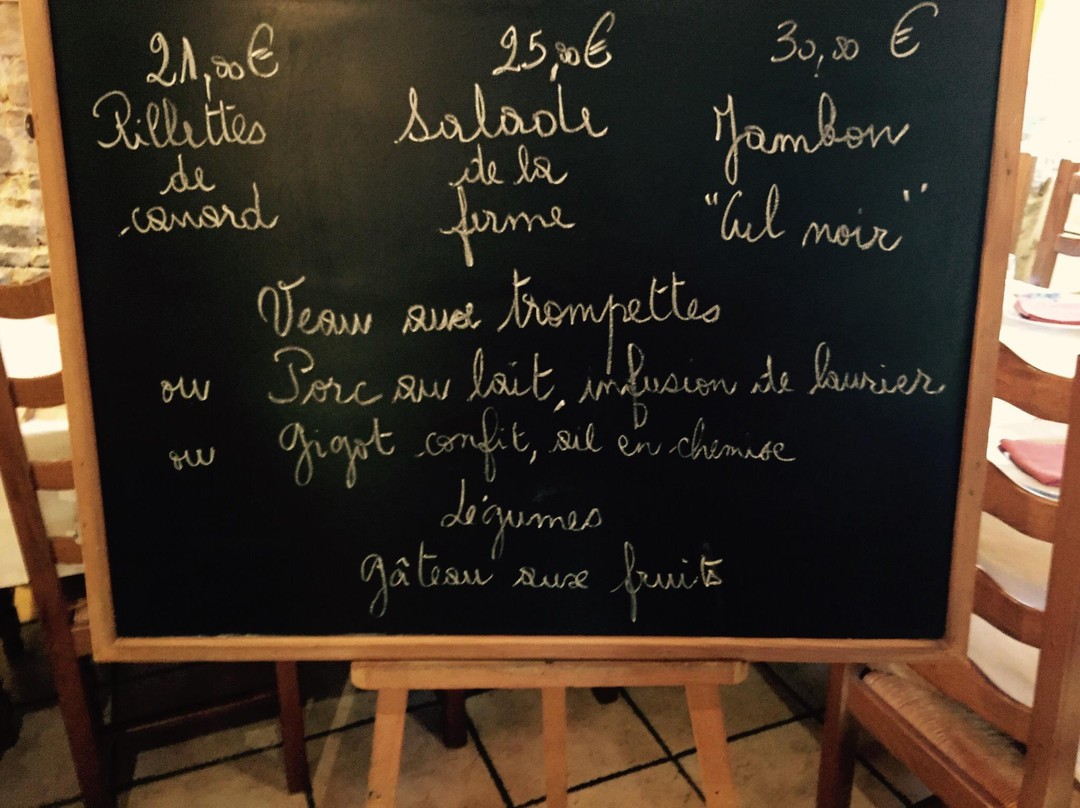 21,00€ 25,00€ 30,00 €
Rillettes Salade Jambon
de de la
canard ferme "Cul noir"
Veau aux trompettes
ou Porc au lait, infusion de laurier
ou Gigot confit, ail en chemise
Légumes
Gâteau aux fruits